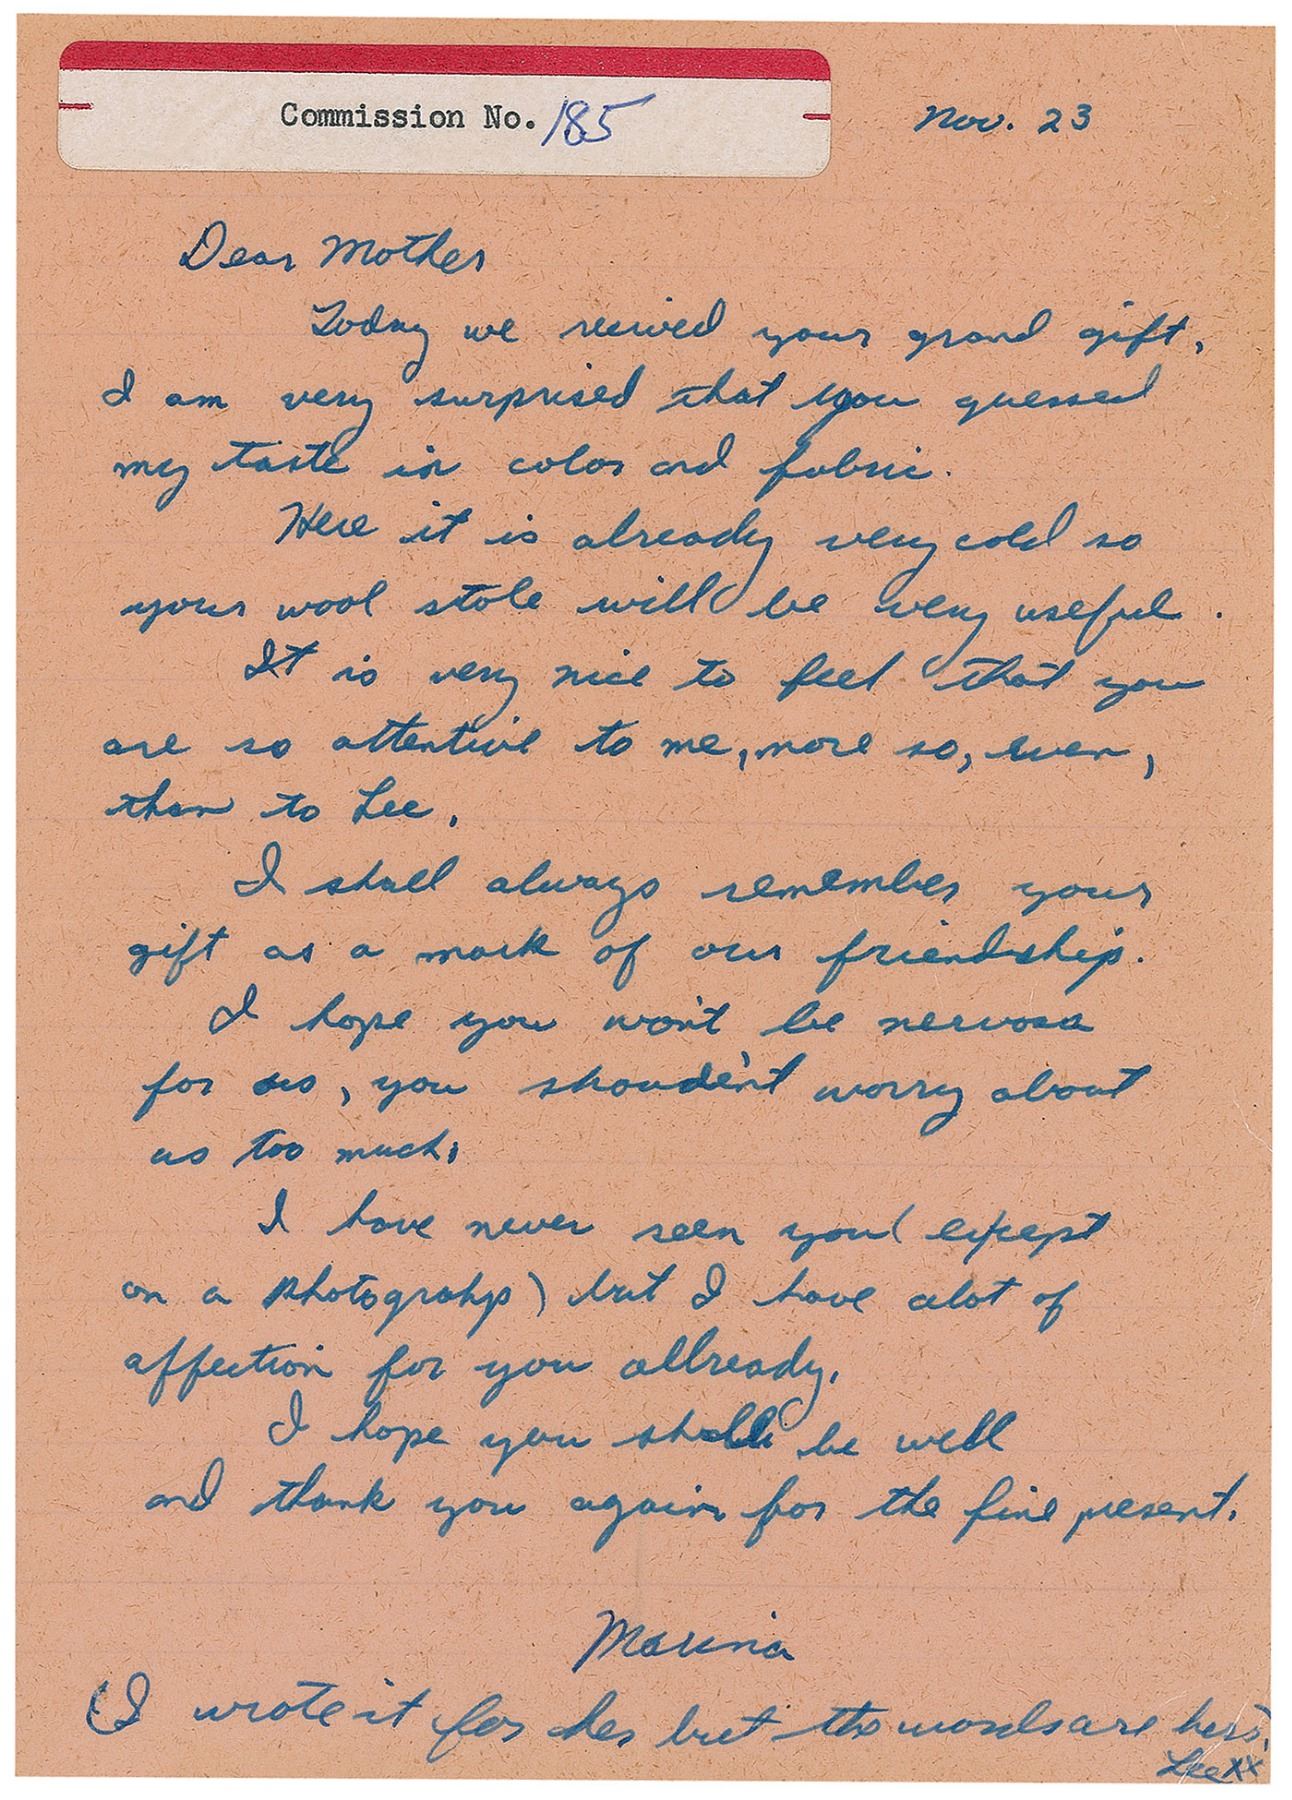 Commission No. 185
Nov. 23
Dear Mother
Today we recived your grand gift,
I am very surprised that you guessed
my taste in color and fabric.
Here it is already very cold so
your wool stole will be very useful.
It is very nice to feel that you
are so attentive to me, more so, even,
than to Lee.
I shall always remember your
gift as a mark of our friendship.
I hope you won't be nervous
for us, you shoulde'nt worry about
us too much.
I have never seen you (except
on a photograhp) but I have alot of
affection for you allready.
I hope you shall be well
and thank you again for the fine present.
Marina
(I wrote it for her but the words are hers.
Lee xx